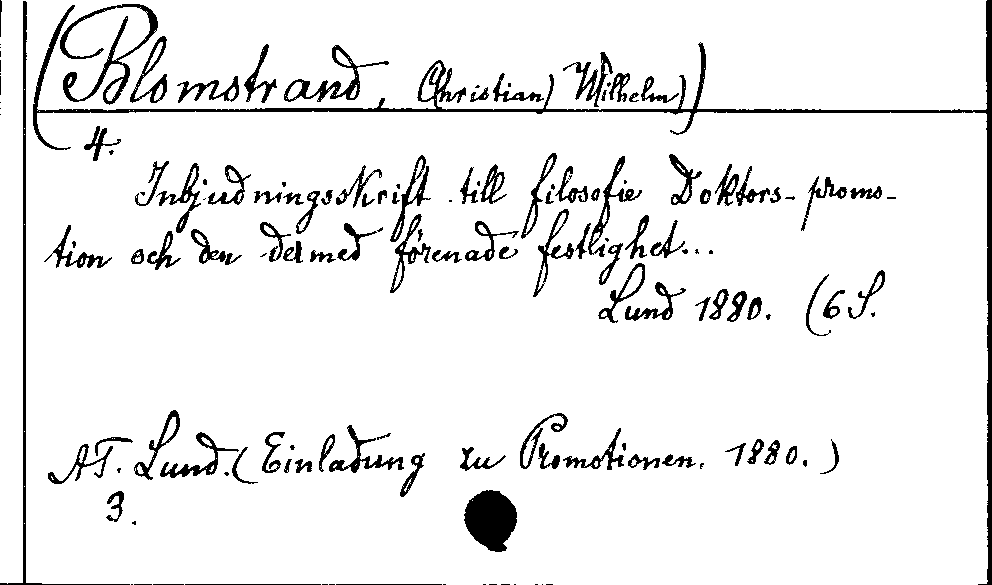 (Blomstrand, Christian) Wilhelm))
4.
Inbjudningsskrift till filosofie Doktors-promo-
tion och den dermed förenade festlighet...
Lund 1880. (6 S.
AT. Lund. (Einladung zu Promotionen. 1880.)
3.